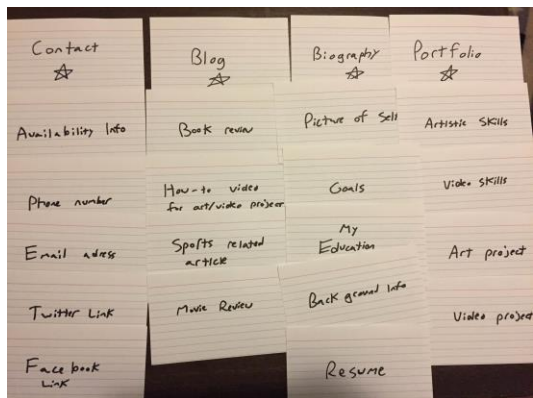 Contact
Availability Info
Phone number
Email adress
Twitter Link
Facebook
Link
Blog
Book review
How-to video
for art/video project
Sports related
article
Movie Review
Biography
Picture of Self
Goals
My
Education
Back ground Info
Resume
Portfolio
Artistic Skills
Video Skills
Art project
Video project